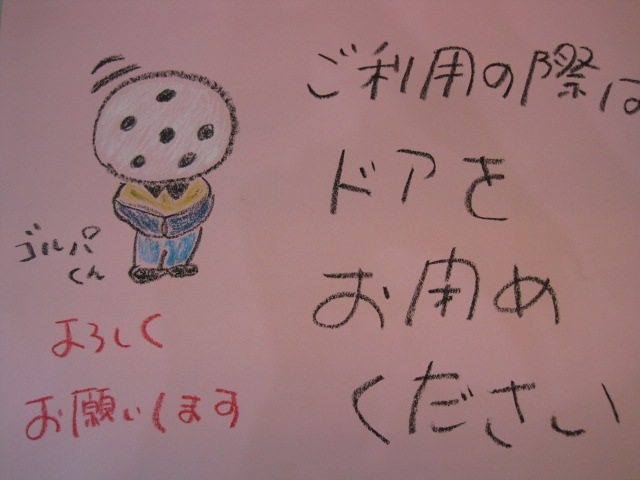 ご利用の際は
ドアを
お閉め
ください
ゴルパ
くん
よろしく
お願いします